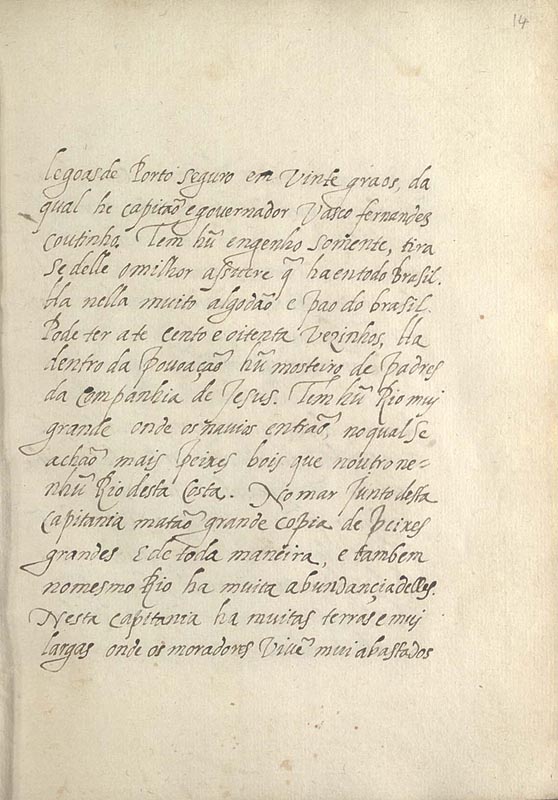 14
legoas de Porto seguro em vinte graos, da
qual he capitaõ e governador Vasco fernandez
coutinho. Tem hũ engenho somente, tira
se delle o milhor assucere q̃ ha em todo Brasil.
Ha nella muito algodaõ e pao do brasil.
Pode ter ate cento e oitenta vezinhos, Ha
dentro da povoaçaõ hũ mosteiro de padres
da Companhia de Jesus. Tem hũ Rio muj
grande onde os navios entraõ, no qual se
achaõ mais peixes bois que noutro ne=
nhũ Rio desta Costa. No mar Junto desta
Capitania mataõ grande copia de peixes
grandes E de toda maneira, e tambem
no mesmo Rio ha muita abundançia delles.
Nesta capitania ha muitas terras e muj
largas onde os moradores vivẽ mui abastados